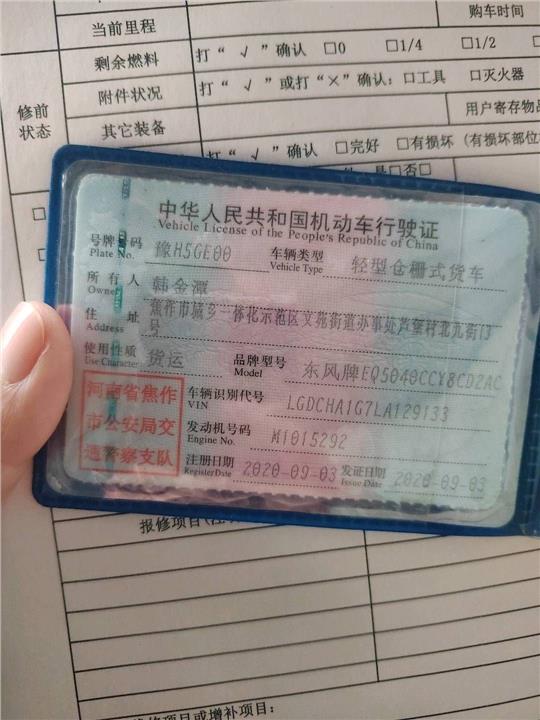 当前里程
购车时间
剩余燃料
打“√”确认 □0 □1/4 □1/2
附件状况
打“√”或打“×”确认：□工具 □灭火器
修前
状态
其它装备
用户寄存物品
打“√”确认 □完好 □有损坏（有损坏部位
是□否□
中华人民共和国机动车行驶证
Vehicle License of the People's Republic of China
号牌号码 豫H5GE00 车辆类型 轻型仓栅式货车
Plate No. Vehicle Type
所有人 韩金源
Owner
住址 焦作市城乡一体化示范区文苑街道办事处芦堡村北九街13
Address 号
使用性质 货运 品牌型号 东风牌EQ5040CCY8CD2AC
Use Character Model
河南省焦作
市公安局交
通警察支队
车辆识别代号 LGDCHA1G7LA129133
VIN
发动机号码 M1015292
Engine No.
注册日期 2020-09-03 发证日期 2020-09-03
Register Date Issue Date
报修项目
项目或增补项目：